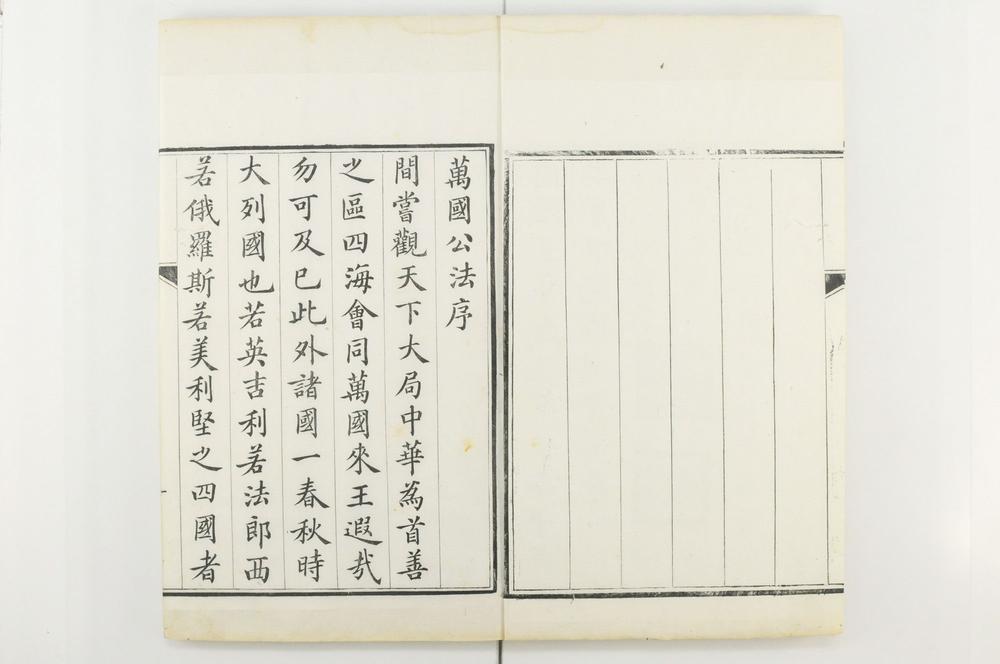 萬國公法序
間嘗觀天下大局中華為首善
之區四海會同萬國來王遐哉
勿可及已此外諸國一春秋時
大列國也若英吉利若法郎西
若俄羅斯若美利堅之四國者